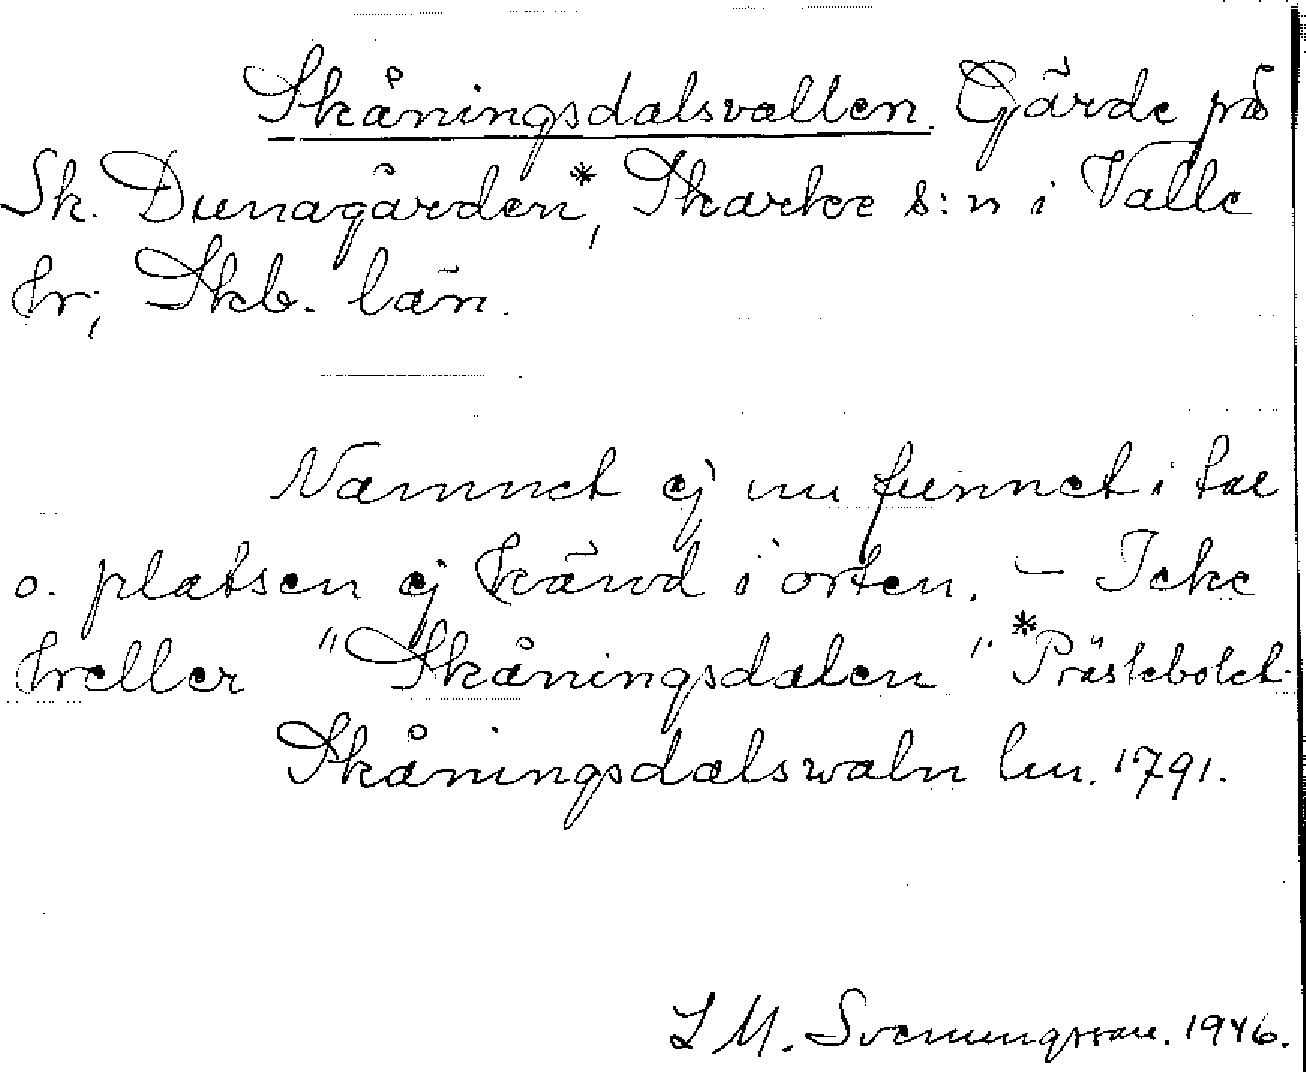 Skåningsdalsvallen. Gärde på
Sk. Dunagården*, Skarke s:n i Valle
hr, Skb. län.
Namnet ej nu funnet i tal
o. platsen ej känd i orten. – Icke
heller "Skåningsdalen" *Prästebolet
Skåningsdalswaln lm. 1791.
L M. Svenungsson. 1946.